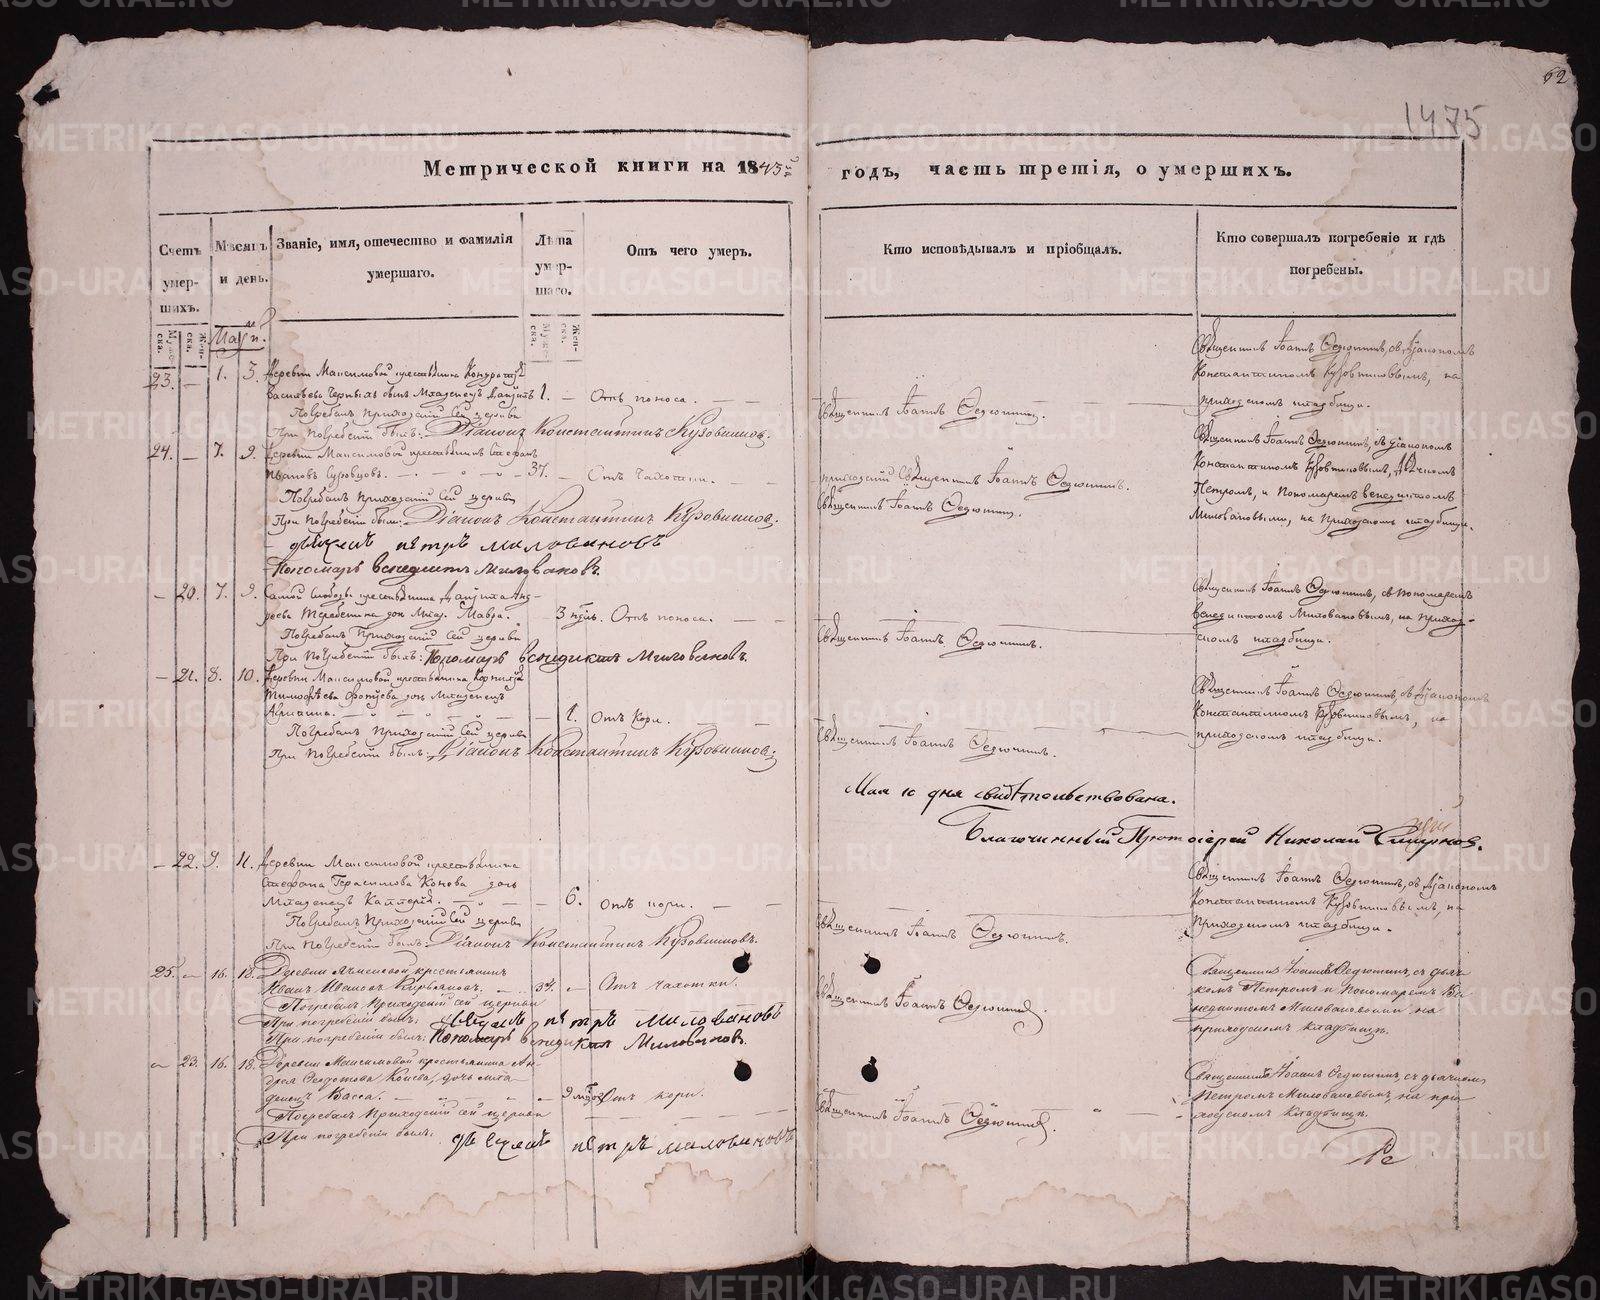 62
1475
Метрической книги на 1843й годъ, часть третія, о умершихъ.
Счетъ умер-шихъ.
Мѣсяцъ и день.
Званіе, имя, отечество и фамилія умершаго.
Лѣта умер-шаго.
Отъ чего умеръ.
Кто исповѣдывалъ и пріобщалъ.
Кто совершалъ погребеніе и гдѣ погребены.
Муже-ска.
Жен-ска.
Муже-ска.
Жен-ска.
Маіи.
23. — 1. 3. Деревни Максимовой крестьянина
Васильева Черныхъ сынъ Младенецъ 1. — Отъ поноса. — —
Погребалъ Приходскій сей церкви
При погребеніи былъ: Діаконъ Константинъ Кузовниковъ.
Священникъ Іоаннъ Федюшинъ.
Священникъ Іоаннъ Федюшинъ, съ Діакономъ
Константиномъ Кузовниковымъ, на
приходскомъ кладбищѣ.
24. — 7. 9. Деревни Максимовой крестьянинъ Стефанъ
Ивановъ Суровцовъ. — 37. — Отъ чахотки. — —
Погребалъ Приходскій сей церкви
При погребеніи были: Діаконъ Константинъ Кузовниковъ.
дьячекъ петръ миловановъ
Пономарь венедиктъ Миловановъ.
приходскій Священникъ Іоаннъ Федюшинъ.
Священникъ Іоаннъ Федюшинъ.
Священникъ Іоаннъ Федюшинъ, съ діакономъ
Константиномъ Кузовниковымъ, дьячкомъ
Петромъ, и пономаремъ венедиктомъ
Миловановыми, на приходскомъ кладбищѣ.
— 20. 7. 9. Самой слободы крестьянина Анд-
реева дочь Млад. Мавра. — 3 нед. Отъ поноса. — —
Погребалъ Приходскій сей церкви
При погребеніи былъ: Пономарь венедиктъ Миловановъ.
Священникъ Іоаннъ Федюшинъ.
Священникъ Іоаннъ Федюшинъ, съ пономаремъ
венедиктомъ Миловановымъ, на приход-
скомъ кладбищѣ.
— 21. 8. 10. Деревни Максимовой крестьянина
Тимофѣева дочь Младенецъ
— 1. Отъ кори. — —
Погребалъ Приходскій сей церкви
При погребеніи былъ: Діаконъ Константинъ Кузовниковъ.
Священникъ Іоаннъ Федюшинъ.
Священникъ Іоаннъ Федюшинъ, съ Діакономъ
Константиномъ Кузовниковымъ, на
приходскомъ кладбищѣ.
Мая 10 дня свидѣтельствована.
Благочинный Протоіерей Николай Смирновъ.
— 22. 9. 11. Деревни Максимовой крестьянина
Стефана Герасимова Конева дочь
Младенецъ — 6. Отъ кори. — —
Погребалъ Приходскій сей церкви
При погребеніи былъ: Діаконъ Константинъ Кузовниковъ.
Священникъ Іоаннъ Федюшинъ.
Священникъ Іоаннъ Федюшинъ, съ Діакономъ
Константиномъ Кузовниковымъ, на
Приходскомъ кладбищѣ.
25. — 16. 18. Деревни крестьянинъ
Иванъ Ивановъ — 34. — Отъ чахотки.
Погребалъ Приходскій сей церкви
При погребеніи былъ: дьячекъ петръ миловановъ
При погребеніи былъ: Пономарь венедиктъ Миловановъ.
Священникъ Іоаннъ Федюшинъ.
Священникъ Іоаннъ Федюшинъ, съ дьяч-
комъ Петромъ и пономаремъ Ве-
недиктомъ Миловановыми на
приходскомъ кладбищѣ.
— 23. 16. 18. Деревни Максимовой крестьянина Ан-
дрея Федотова Конева, дочь мла-
денецъ Васса. — 9 мѣс. Отъ кори.
Погребалъ Приходскій сей церкви
При погребеніи былъ: дьячекъ петръ миловановъ
Священникъ Іоаннъ Федюшинъ.
Священникъ Іоаннъ Федюшинъ, съ дьячкомъ
Петромъ Миловановымъ, на при-
ходскомъ кладбищѣ.
METRIKI.GASO-URAL.RU